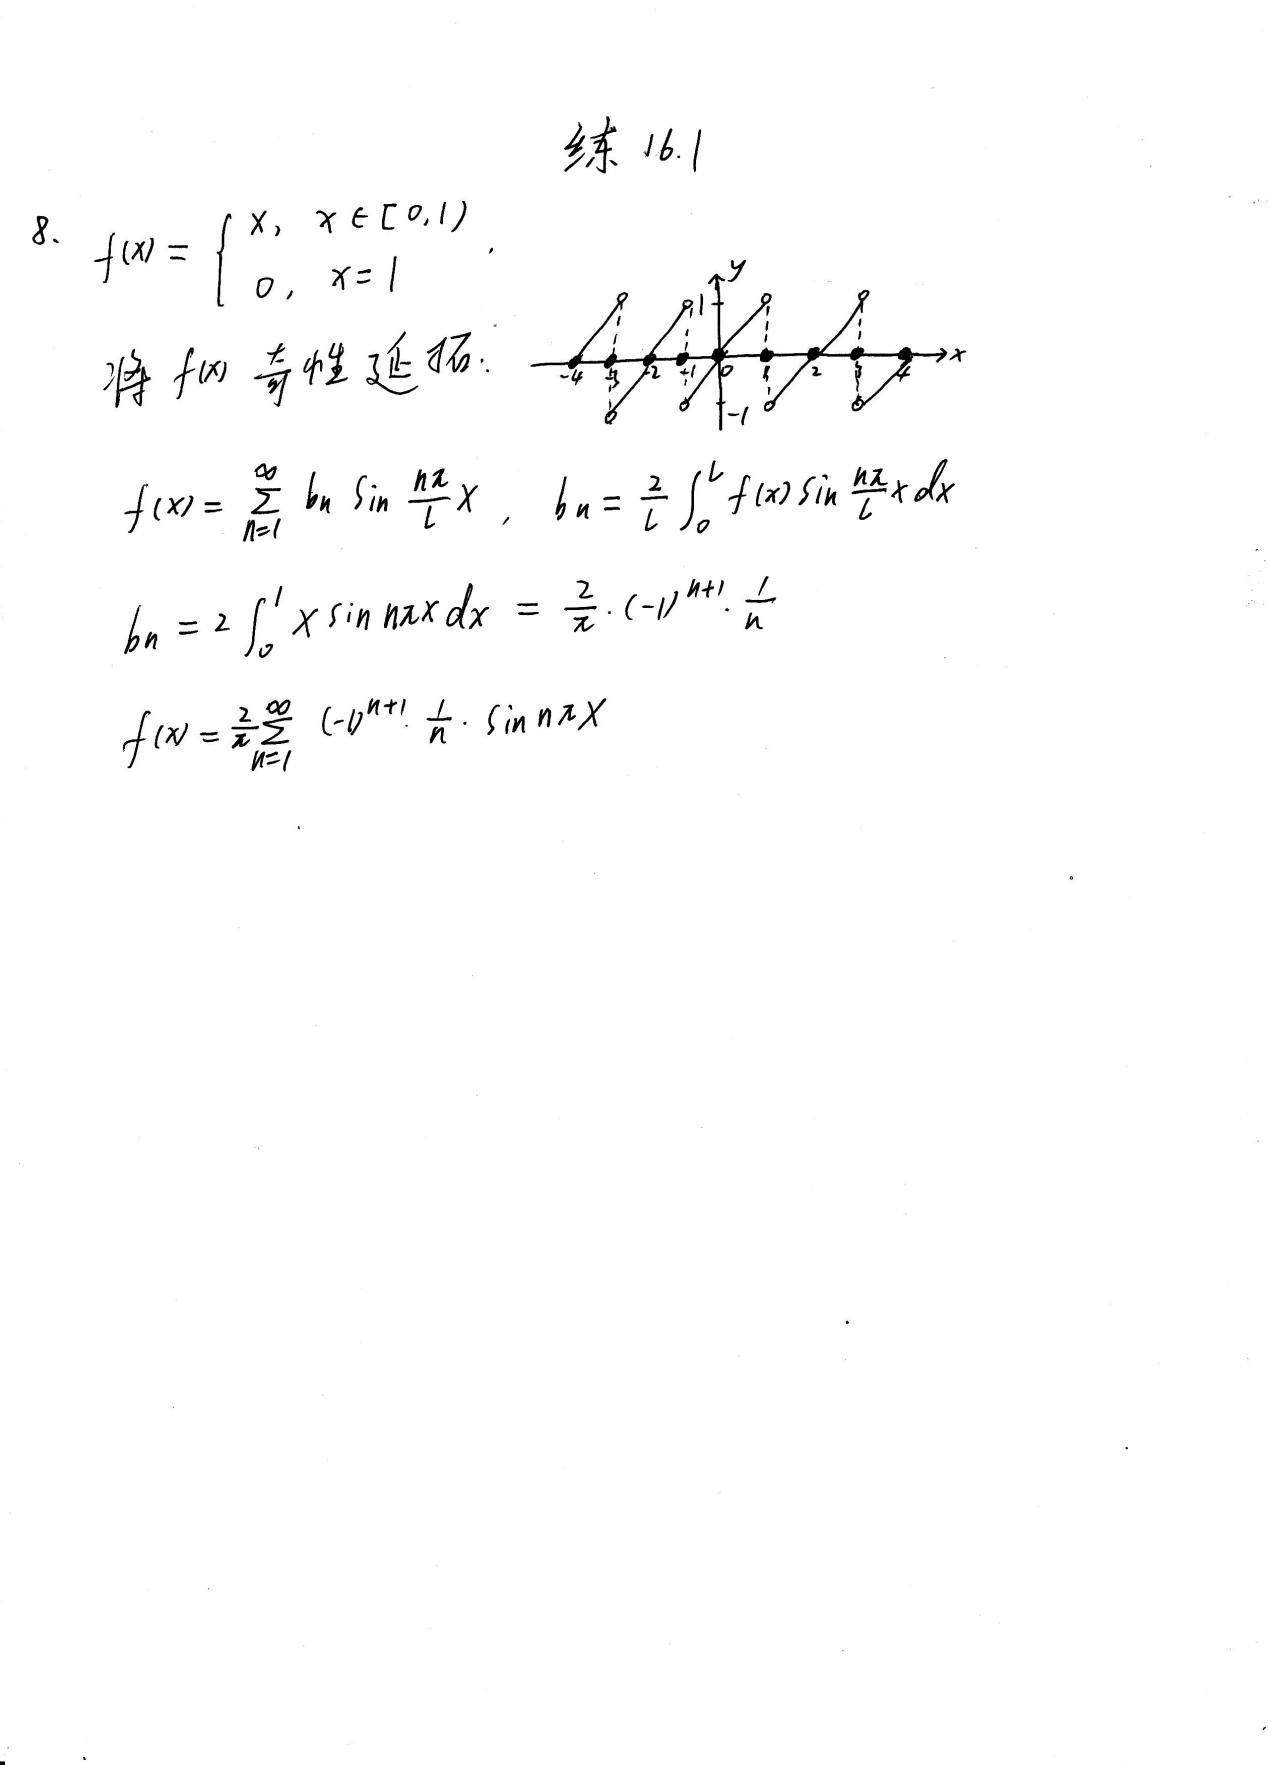 练 16.1
8. f(x) = { x, x ∈ [0,1)
0, x = 1 .
将 f(x) 奇性延拓:
y
1
-4 -3 -2 -1 0 1 2 3 4 x
-1
f(x) = ∑_{n=1}^{∞} bn sin nπ/L x , bn = 2/L ∫_0^L f(x) sin nπ/L x dx
bn = 2 ∫_0^1 x sin nπx dx = 2/π · (-1)^{n+1} · 1/n
f(x) = 2/π ∑_{n=1}^{∞} (-1)^{n+1} · 1/n · sin nπx